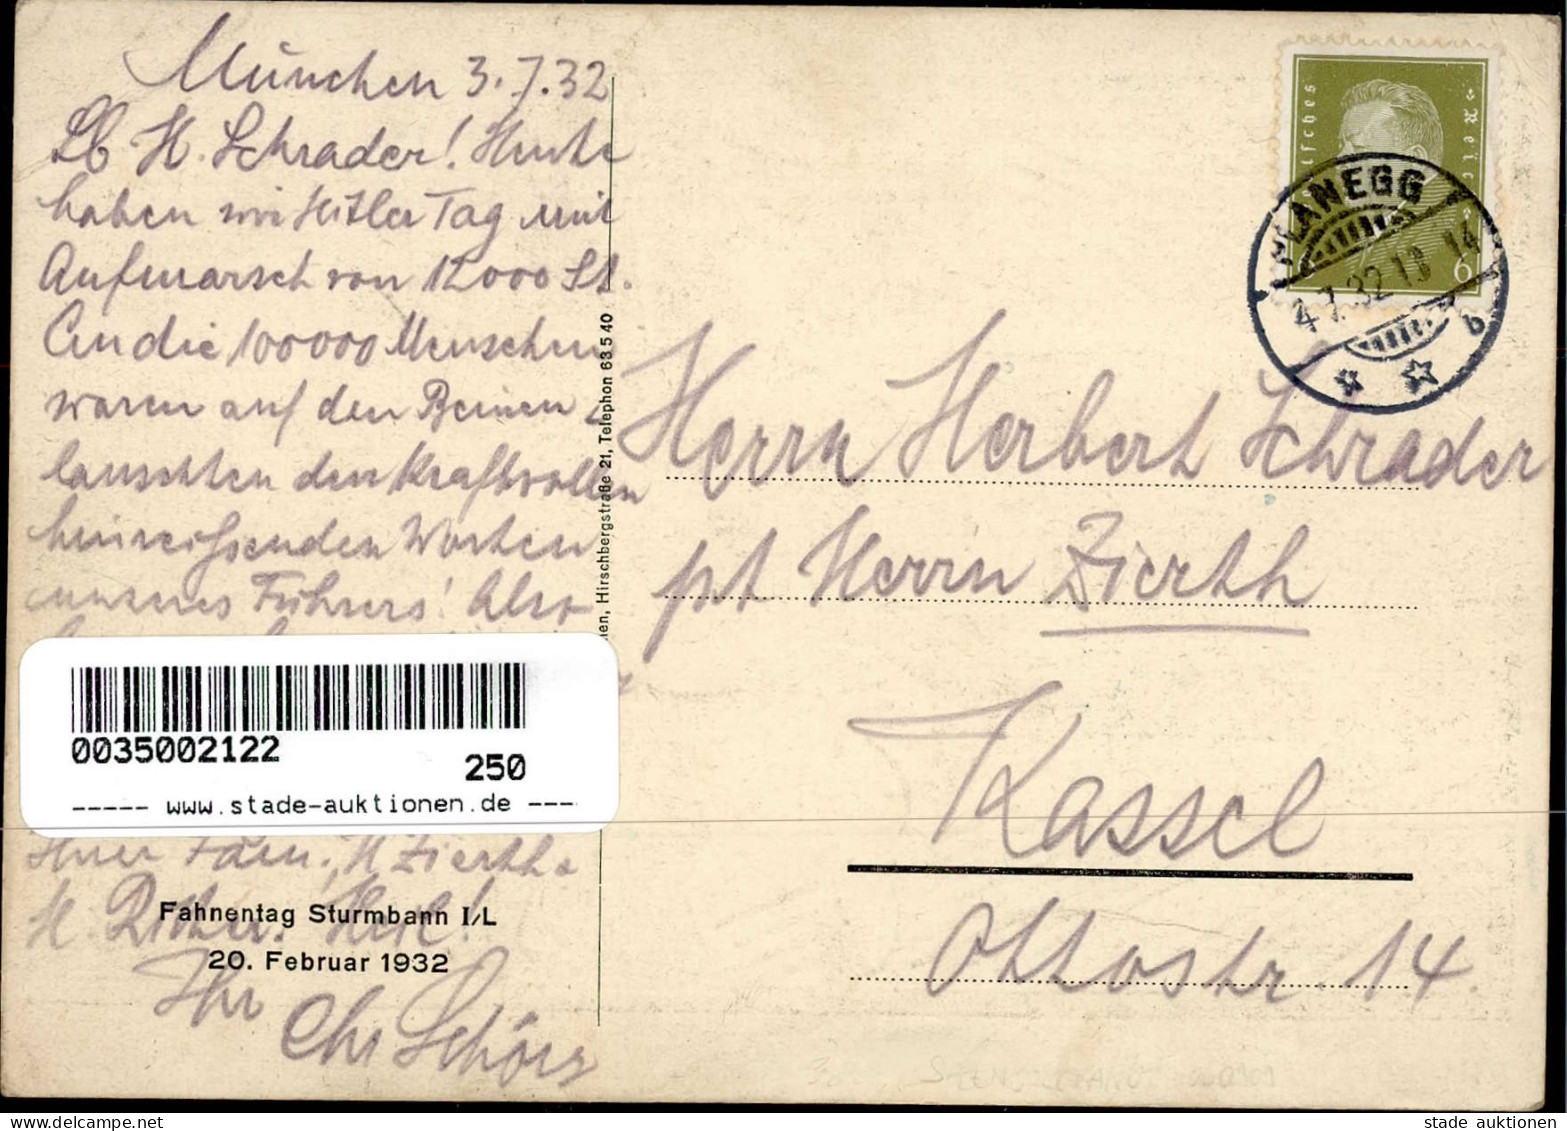 München 3.7.32
Lb H. Schrader! Heute
haben wir Hitler Tag mit
Aufmarsch von 12000 SA.
An die 100000 Menschen
waren auf den Beinen &
lauschten den kraftvollen
hinreissenden Worten
unseres Führers! Also
0035002122
250
----- www.stade-auktionen.de ---
Ihrer Fam., H Zierth &
H. Heil!
Fahnentag Sturmbann I/L
20. Februar 1932
Ihr
Chr
Hirschbergstraße 21, Telephon 63 5 40
Deutsches Reich
6
PLANEGG
4.7.32.13-14
b
Herrn Herbert Schrader
pt Herrn Zierth
Kassel
Ottostr. 14.
stade auktionen